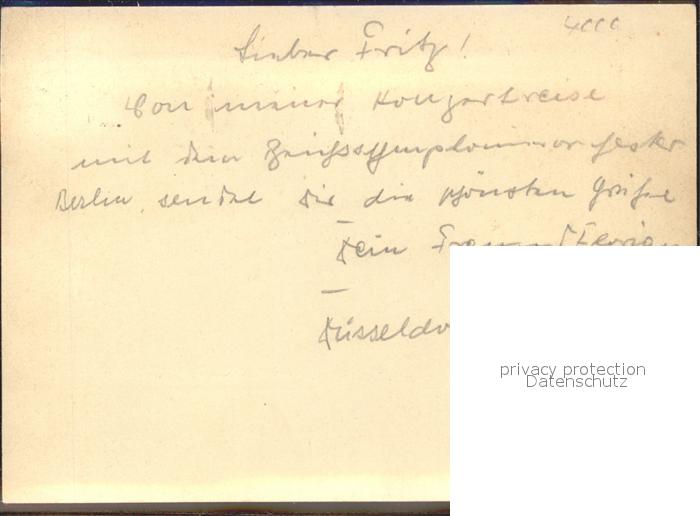 4000
Lieber Fritz!
Von meiner Konzertreise
mit dem Reichssymphonieorchester
Berlin, sendet Dir die schönsten Grüße
Dein Freund Florian
Düsseldo
privacy protection
Datenschutz